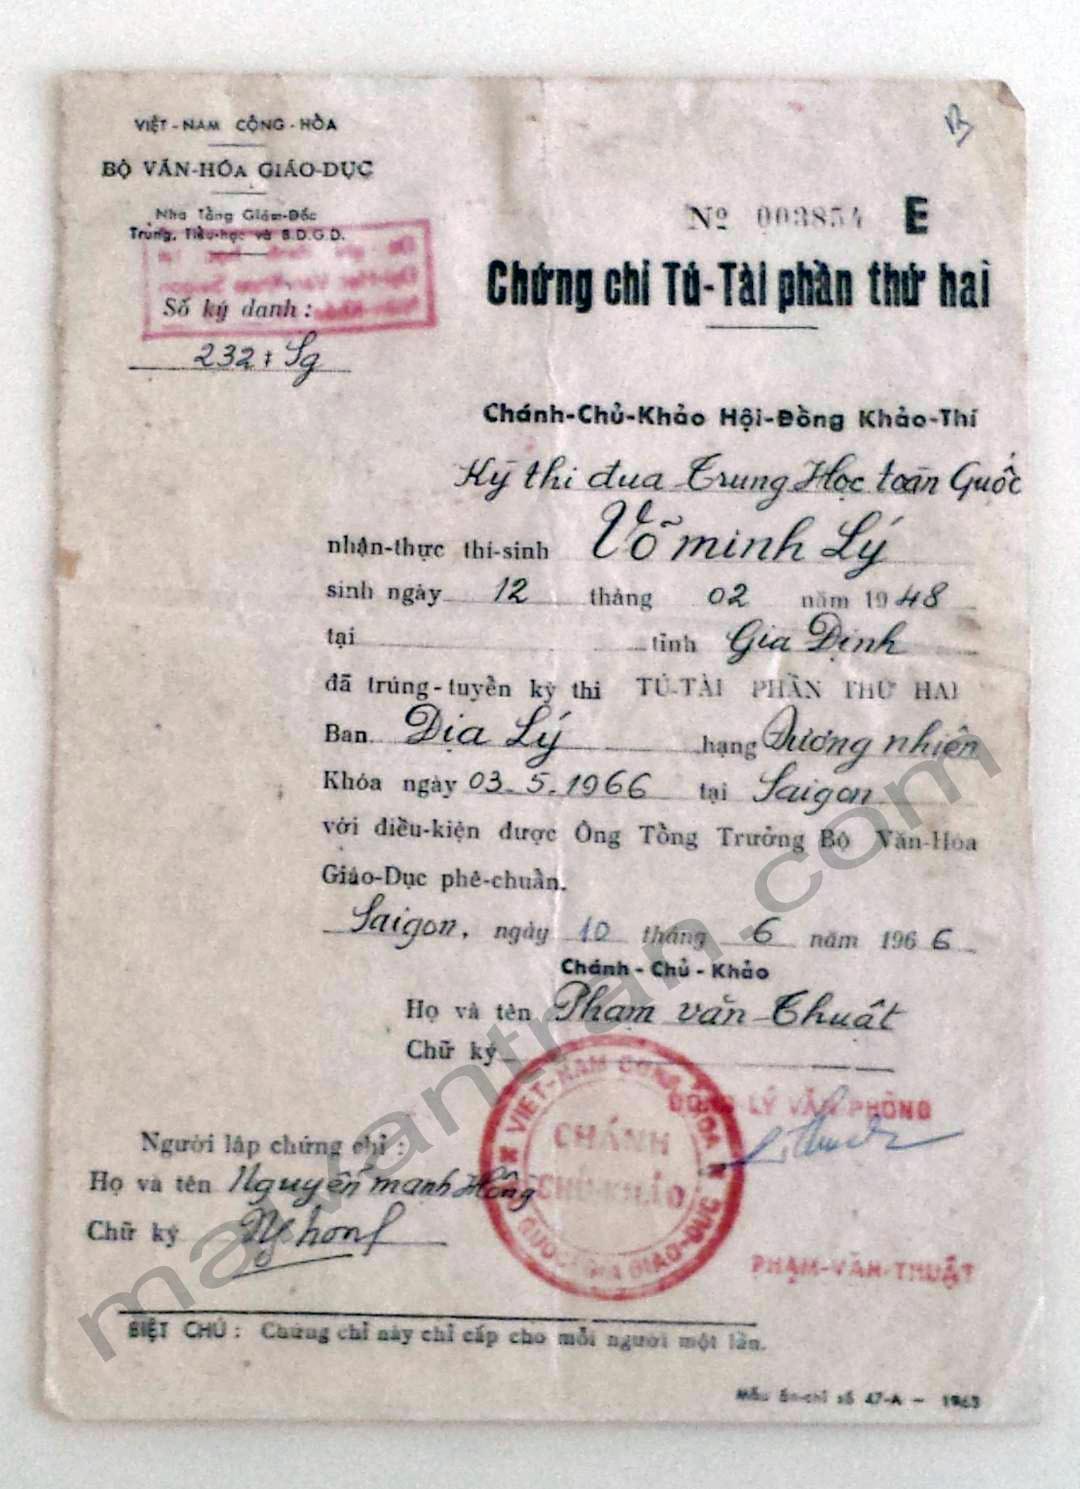 VIỆT-NAM CỘNG-HÒA
BỘ VĂN-HÓA GIÁO-DỤC
Nha Tổng Giám-Đốc
Trung, Tiểu-học và B.D.G.D.
Số ký danh :
232 : Sg
Nº 003854 E
Chứng chỉ Tú-Tài phần thứ hai
Chánh-Chủ-Khảo Hội-Đồng Khảo-Thí
Kỳ thi đua Trung Học toàn Quốc
nhận-thực thí-sinh Võ minh Lý
sinh ngày 12 tháng 02 năm 1948
tại tỉnh Gia Định
đã trúng-tuyển kỳ thi TÚ-TÀI PHẦN THỨ HAI
Ban Địa Lý hạng Đương nhiên
Khóa ngày 03.5.1966 tại Saigon
với điều-kiện được Ông Tổng Trưởng Bộ Văn-Hóa
Giáo-Dục phê-chuẩn.
Saigon, ngày 10 tháng 6 năm 1966
Chánh-Chủ-Khảo
Họ và tên Phạm văn Thuật
Chữ ký
VIỆT-NAM CỘNG-HÒA
CHÁNH
CHỦ-KHẢO
QUỐC-GIA GIÁO-DỤC
ĐỔNG-LÝ VĂN-PHÒNG
PHẠM-VĂN-THUẬT
Người lập chứng chỉ :
Họ và tên Nguyễn mạnh Hồng
Chữ ký
BIỆT CHÚ : Chứng chỉ này chỉ cấp cho mỗi người một lần.
Mẫu ấn-chỉ số 47-A — 1963
mavantran.com